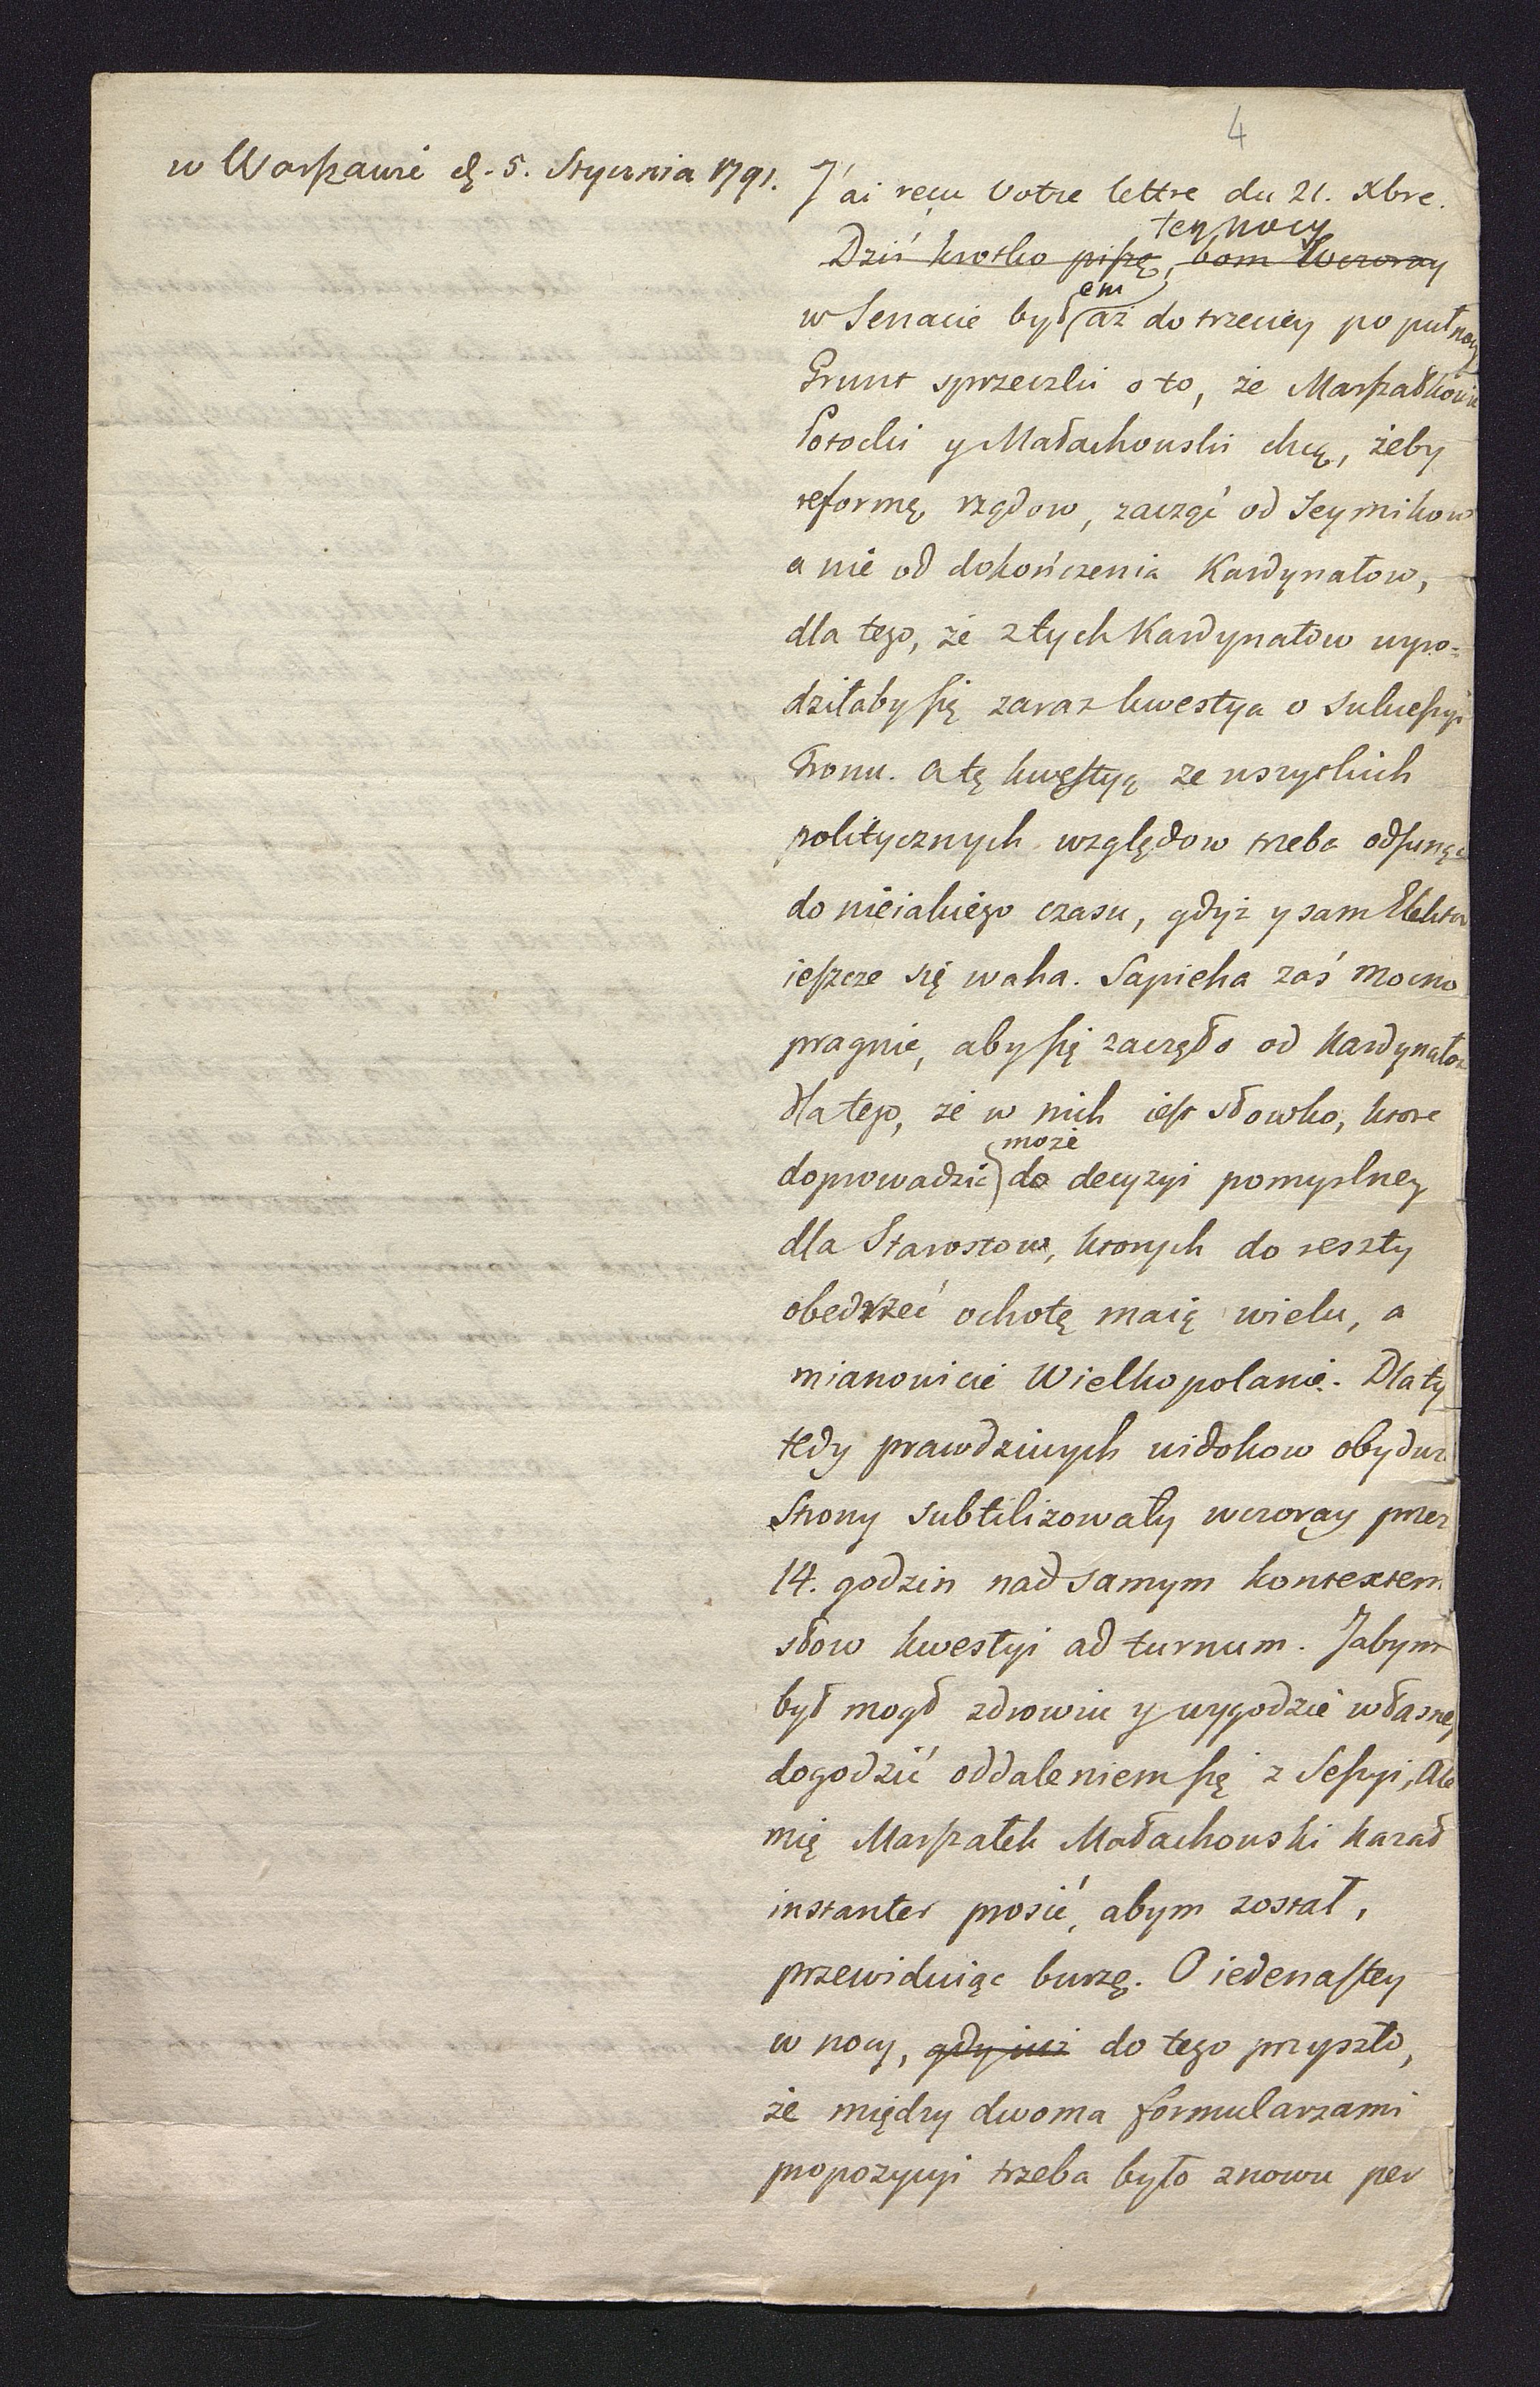 4
w Warszawie d. 5. Stycznia 1791.
J'ai reçu Votre lettre du 21. Xbre.
tey nocy
Dziś krotko piszę, bom Wczoray
em
w Senacie był aż do trzeciey po puł nocy
Grunt sprzeczki o to, że Marszałkowie
Potocki y Małachowski chcą, żeby
reformę rządow, zacząć od Seymikow
a nie od dokończenia Kardynałow,
dla tego, że z tych Kardynałow wyro=
dziłaby się zaraz kwestya o Sukcessyi
Tronu. a tę kwestyą ze wszystkich
politycznych względow trzeba odsunąć
do nieiakiego czasu, gdyż y sam Elektor
ieszcze się waha. Sapieha zaś mocno
pragnie, aby się zaczęło od Kardynałow
dla tego, że w nich iest słowko, ktore
może
doprowadzić do decyzyi pomyslney
dla Starostow, ktorych do reszty
obedrzeć ochotę maią wielu, a
mianowicie Wielkopolanie. Dla tych
tedy prawdziwych widokow obydwie
Strony subtilizowały wczoray przez
14. godzin nad samym kontextem
słow kwestyi ad turnum. Jabym
był mogł zdrowiu y wygodzie własney
dogodzić oddaleniem się z Sessyi, ale
mię Marszałek Małachowski kazał
instanter prosić, abym został,
przewiduiąc burzę. O iedenastey
w nocy, gdy iuż do tego przyszło,
że między dwoma formularzami
propozycyi trzeba było znowu per